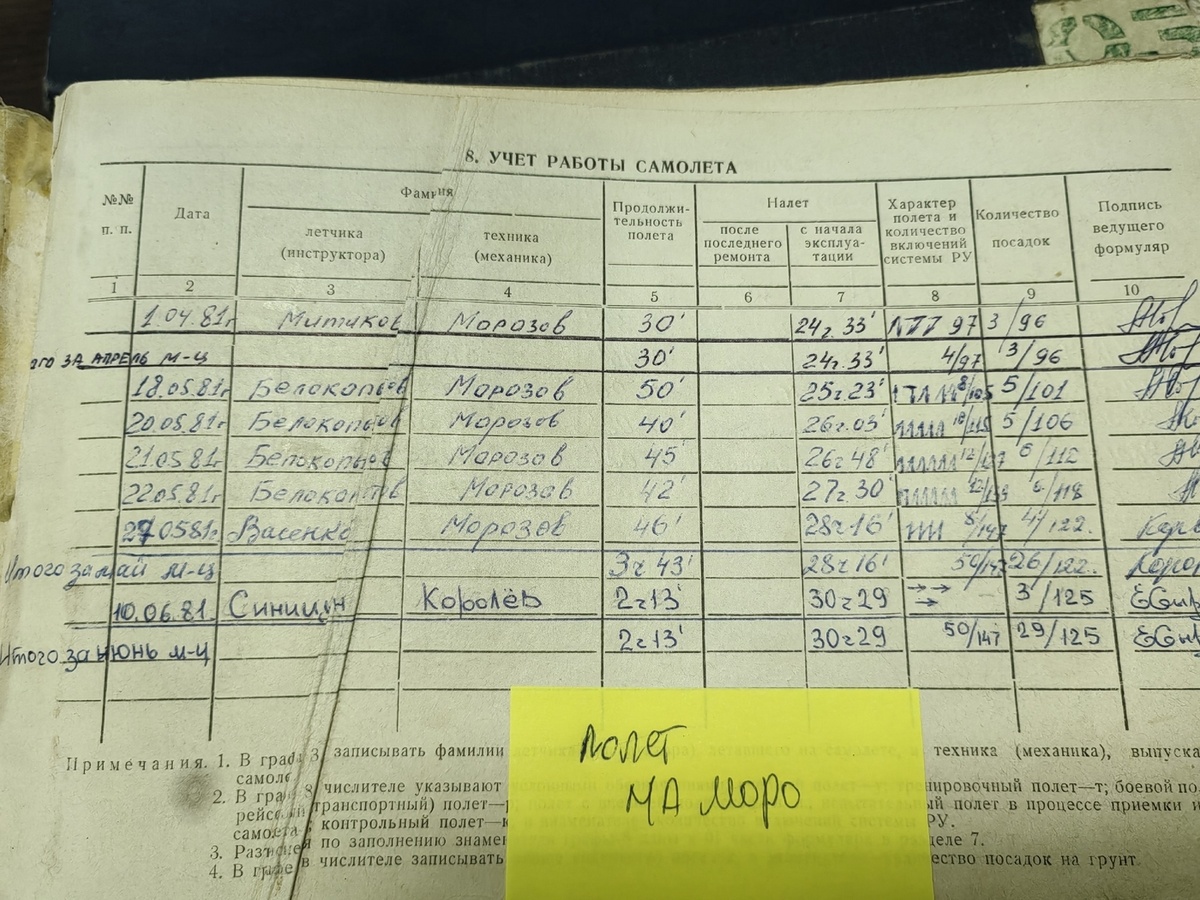 8. УЧЕТ РАБОТЫ САМОЛЕТА
№№ п. п.
Дата
Фамиия
летчика (инструктора)
техника (механика)
Продолжи-
тельность
полета
Налет
после
последнего
ремонта
с начала
эксплуа-
тации
Характер
полета и
количество
включений
системы РУ
Количество
посадок
Подпись
ведущего
формуляр
1 2 3 4 5 6 7 8 9 10
1.04.81г Митиков Морозов 30' 24г.33' 97 3/96
ого ЗА АПРЕЛЬ М-Ц 30' 24г.33' 4/97 3/96
18.05.81г Белокопытов Морозов 50' 25г23' 5/101
20.05.81г Белокопытов Морозов 40' 26г.03' 5/106
21.05.81г Белокопытов Морозов 45' 26г48' 6/112
22.05.81г Белокопытов Морозов 42' 27г.30' 6/118
27.0581г Васенко Морозов 46' 28г16' 8/147 4/122.
Итого за май м-ц 3г43' 28г16' 50/147 26/122.
10.06.81. Синицын Королёв 2г13' 30г29 →→→ 3/125
Итого за июнь м-ц 2г13' 30г29 50/147 29/125
Примечания. 1. В граф 3, записывать фамилии техника (механика), выпуска
самоле
2. В гра 8 числителе указывают нировочный полет—т; боевой по
рейс транспортный) полет— ный полет в процессе приемки и
самолета контрольный полет—к РУ.
3. по заполнению знамен деле 7.
4. В гр в числителе записывать ество посадок на грунт
полет
НА МОРО